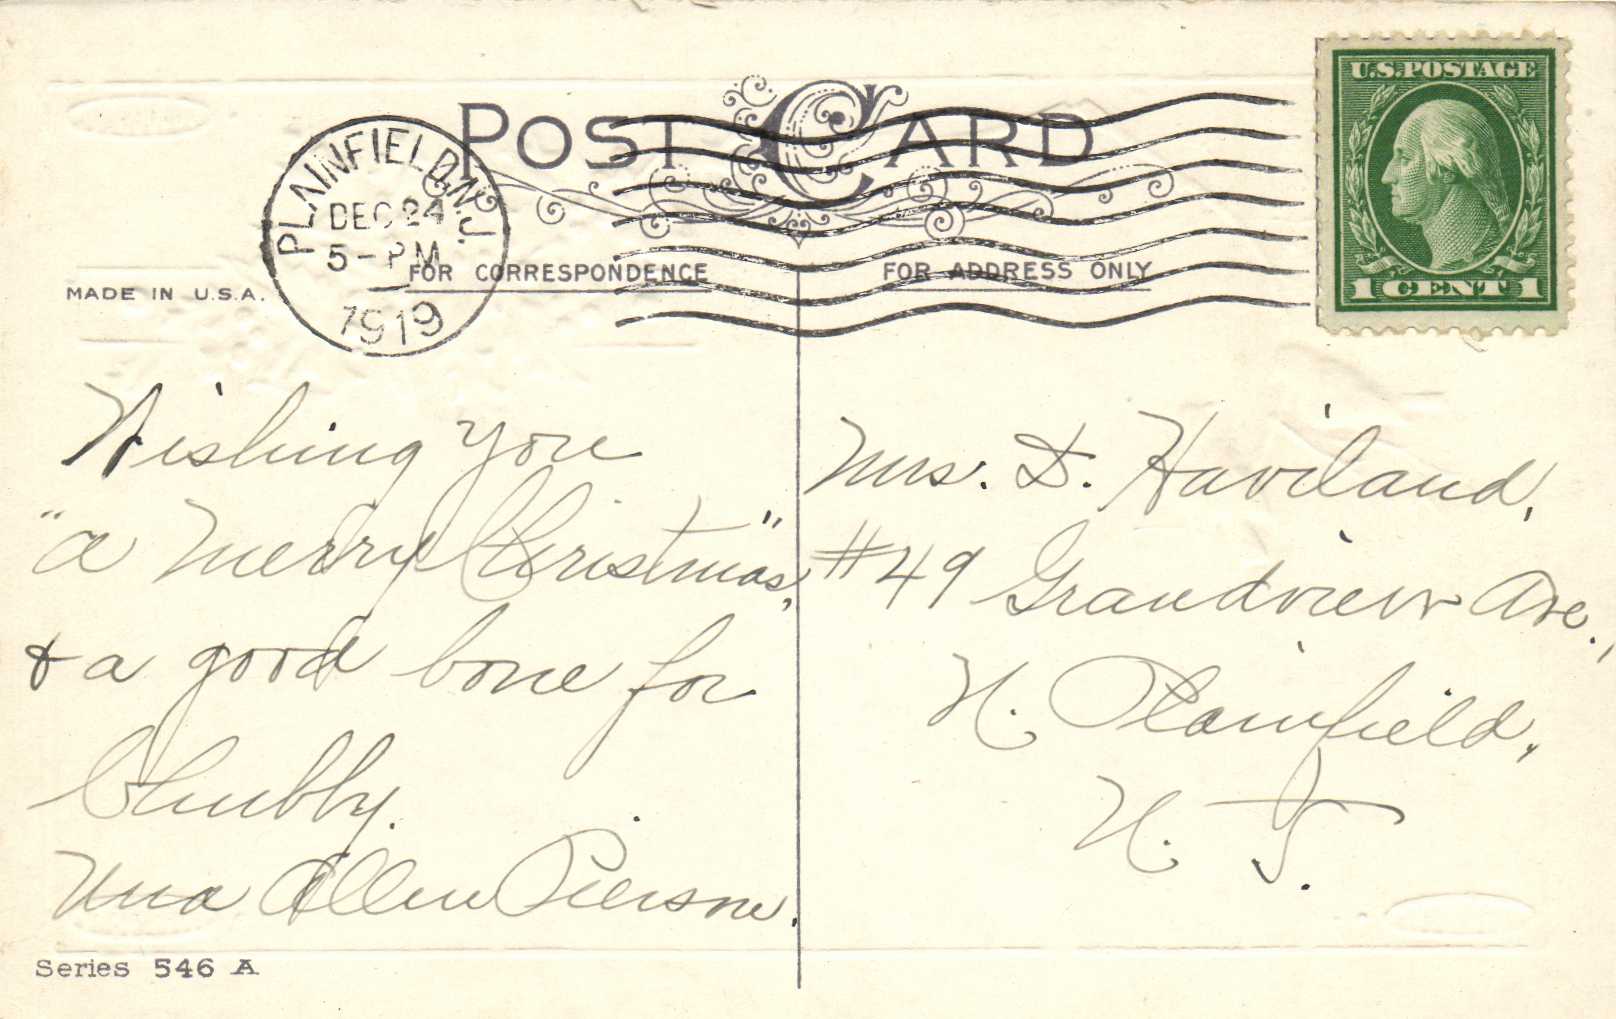 POST CARD
U.S. POSTAGE
1 CENT 1
PLAINFIELD, N.J.
DEC 24
5 - PM
1919
FOR CORRESPONDENCE
FOR ADDRESS ONLY
MADE IN U.S.A.
Wishing you
"a Merry Christmas",
& a good bone for
Chubby.
Una Allen Pierson.
Mrs. D. Haviland,
#49 Grandview Ave.,
N. Plainfield,
N. J.
Series 546 A